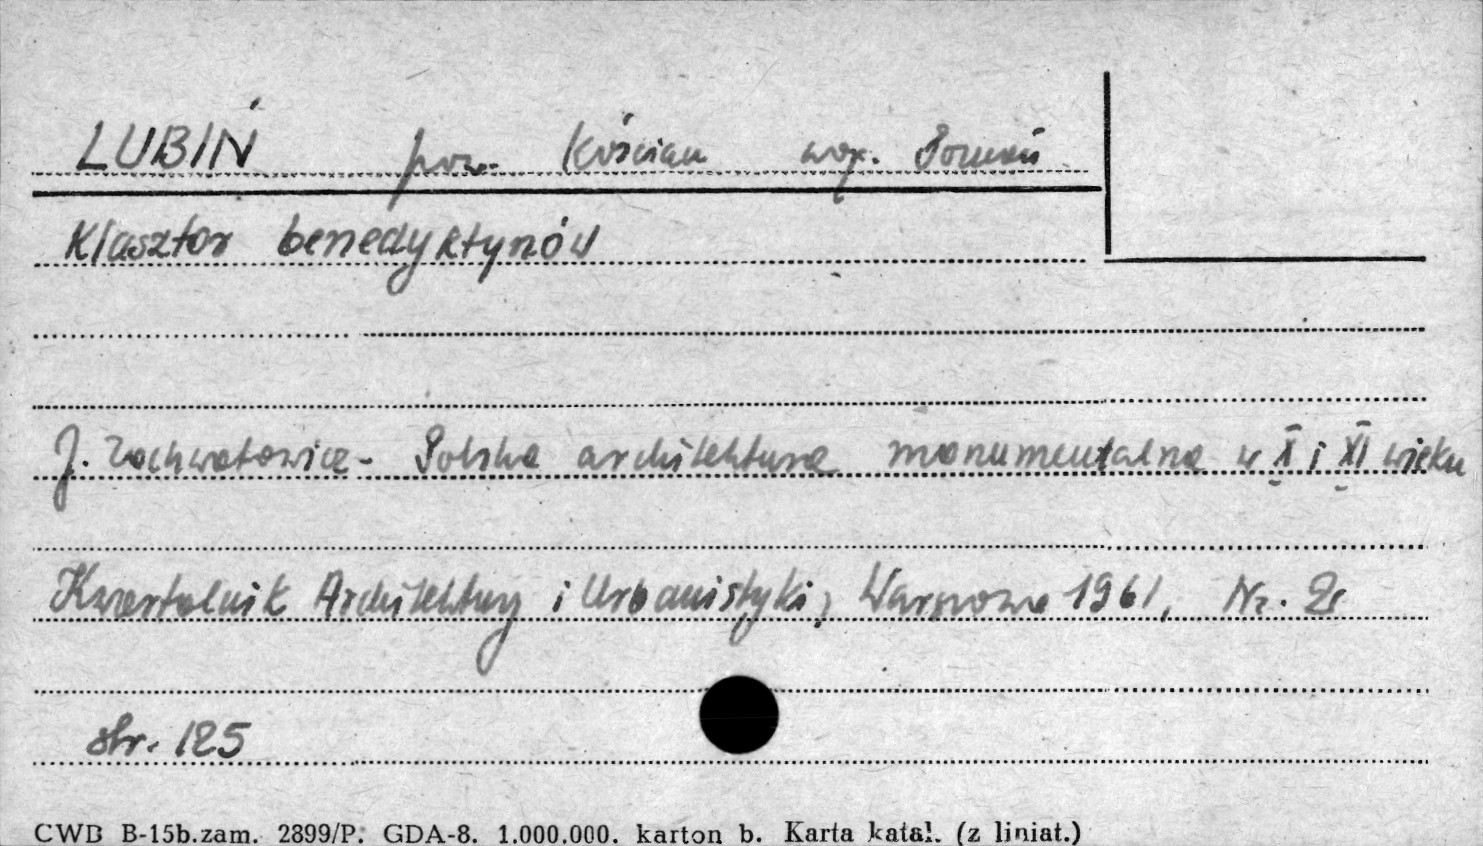 LUBIŃ pow. Kościan woj. Poznań
Klasztor benedyktynów
J. Zachwatowicz - Polska architektura monumentalna w X i XI wieku
Kwartalnik Architektury i Urbanistyki, Warszawa 1961, Nr. 2
str. 125
CWB B-15b.zam. 2899/P. GDA-8. 1.000.000. karton b. Karta katal. (z liniat.)